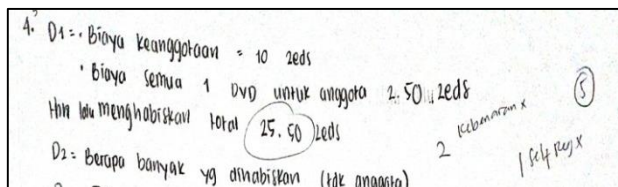 4. D1 = • Biaya keanggotaan = 10 zeds
• Biaya semua 1 DVD untuk anggota 2.50 zeds
thn lalu menghabiskan total 25.50 zeds
D2 = Berapa banyak yg dihabiskan (tdk anggota)
5
2 kebenaran x
1 Self Reg x